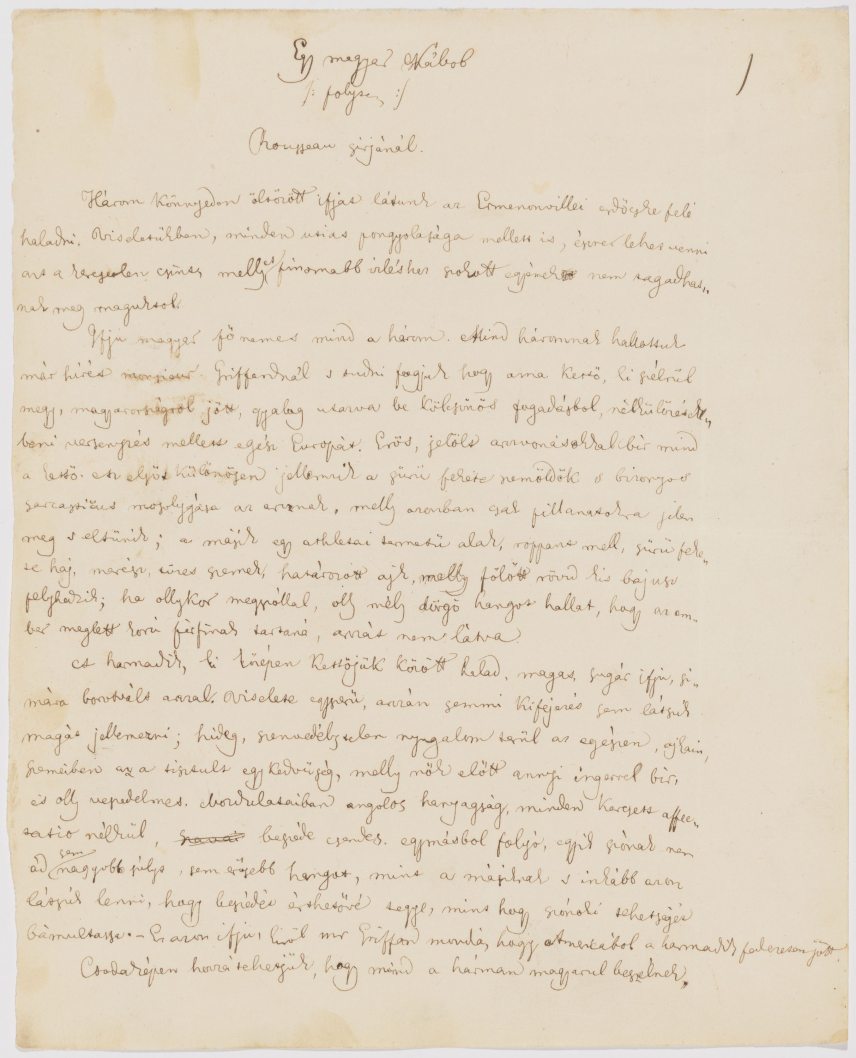 Egy magyar Nábob
/: folyta :/
Rousseau sirjánál.
Három könnyeden öltözött ifjat látunk az Ermenonvillei erdöcske felé
haladni. Viseletükben, minden utias pongyolasága mellett is, észre lehet venni
azt a keresetlen csint, mellyet finomabb izléshez szokott egyének nem tagadhat„
nak meg maguktol.
Ifju magyar fönemes mind a három. Mind háromnak hallottuk
már hirét monsieur Griffardnál s tudni fogjuk hogy ama kettö, ki szélrül
megy, magyarországról jött, gyalog utazva be kölcsönös fogadásbol, nélkülözések„
beni versenyzés mellett egész Európát. Erös, jelölt arcvonásokkal bir mind
a kettö. Az elsöt különösen jellemzik a sürü fekete szemöldök s bizonyos
sarcasticus mosolygása az arcznak, melly azonban csak pillanatokra jelen
meg s eltünik; a másik egy athletai termetü alak, roppant mell, sürü feke„
te haj, merész, tüzes szemek, határozott ajk, melly fölött rövid kis bajusz
felyhedzik; ha ollykor megszóllal, olly mély dörgö hangot hallat, hogy az em„
ber meglett korú férfinak tartaná, arczát nem látva
A harmadik, ki középen kettöjük között halad, magas, sugár ifju, si„
mára borotvált arczal. Viselete egyszerü, arczán semmi kifejezés sem látszik
magát jellemezni; hideg, szenvedélytelen nyugalom terül az egészen, ajkain,
szemeiben az a tisztult egykedvüség, melly nök elött annyi ingerrel bir,
és olly veszedelmes. Mozdulataiban angolos hanyagság, minden keresett affec„
tatio nélkül, szavai beszéde csendes. egymásbol folyó, egyik szónak nem
ád sem nagyobb súlyt, sem erösebb hangot, mint a másiknak s inkább azon
látszik lenni, hogy beszédét érthetövé tegye, mint hogy szónoki tehetségét
bámultassa. – Ez azon ifju, kiröl mr Griffard mondá, hogy Americából a harmadik fedezeten jött.
Csodaképen hozzá tehetjük, hogy mind a hárman magyarul beszélnek„